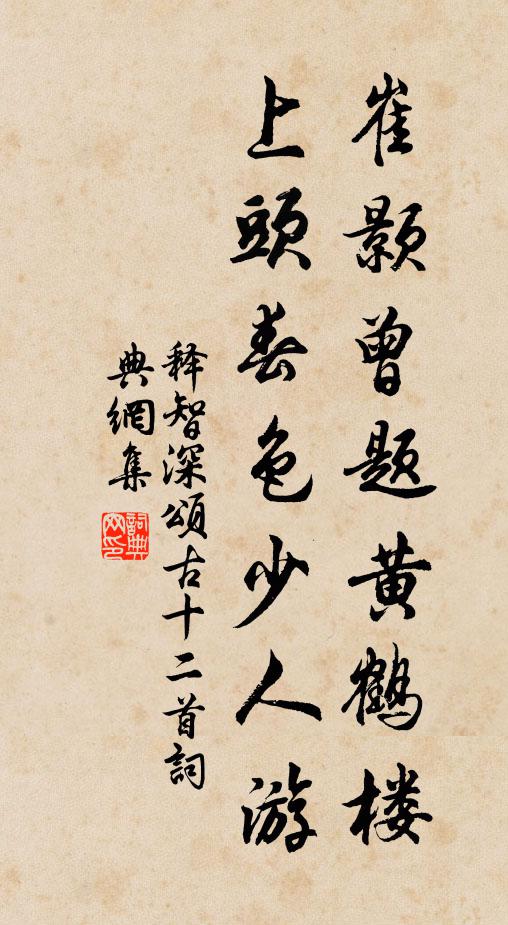 崔颢曾题黄鹤楼
上頭春色少人游
释智深頌古十二首詞
典網集
詞典網印